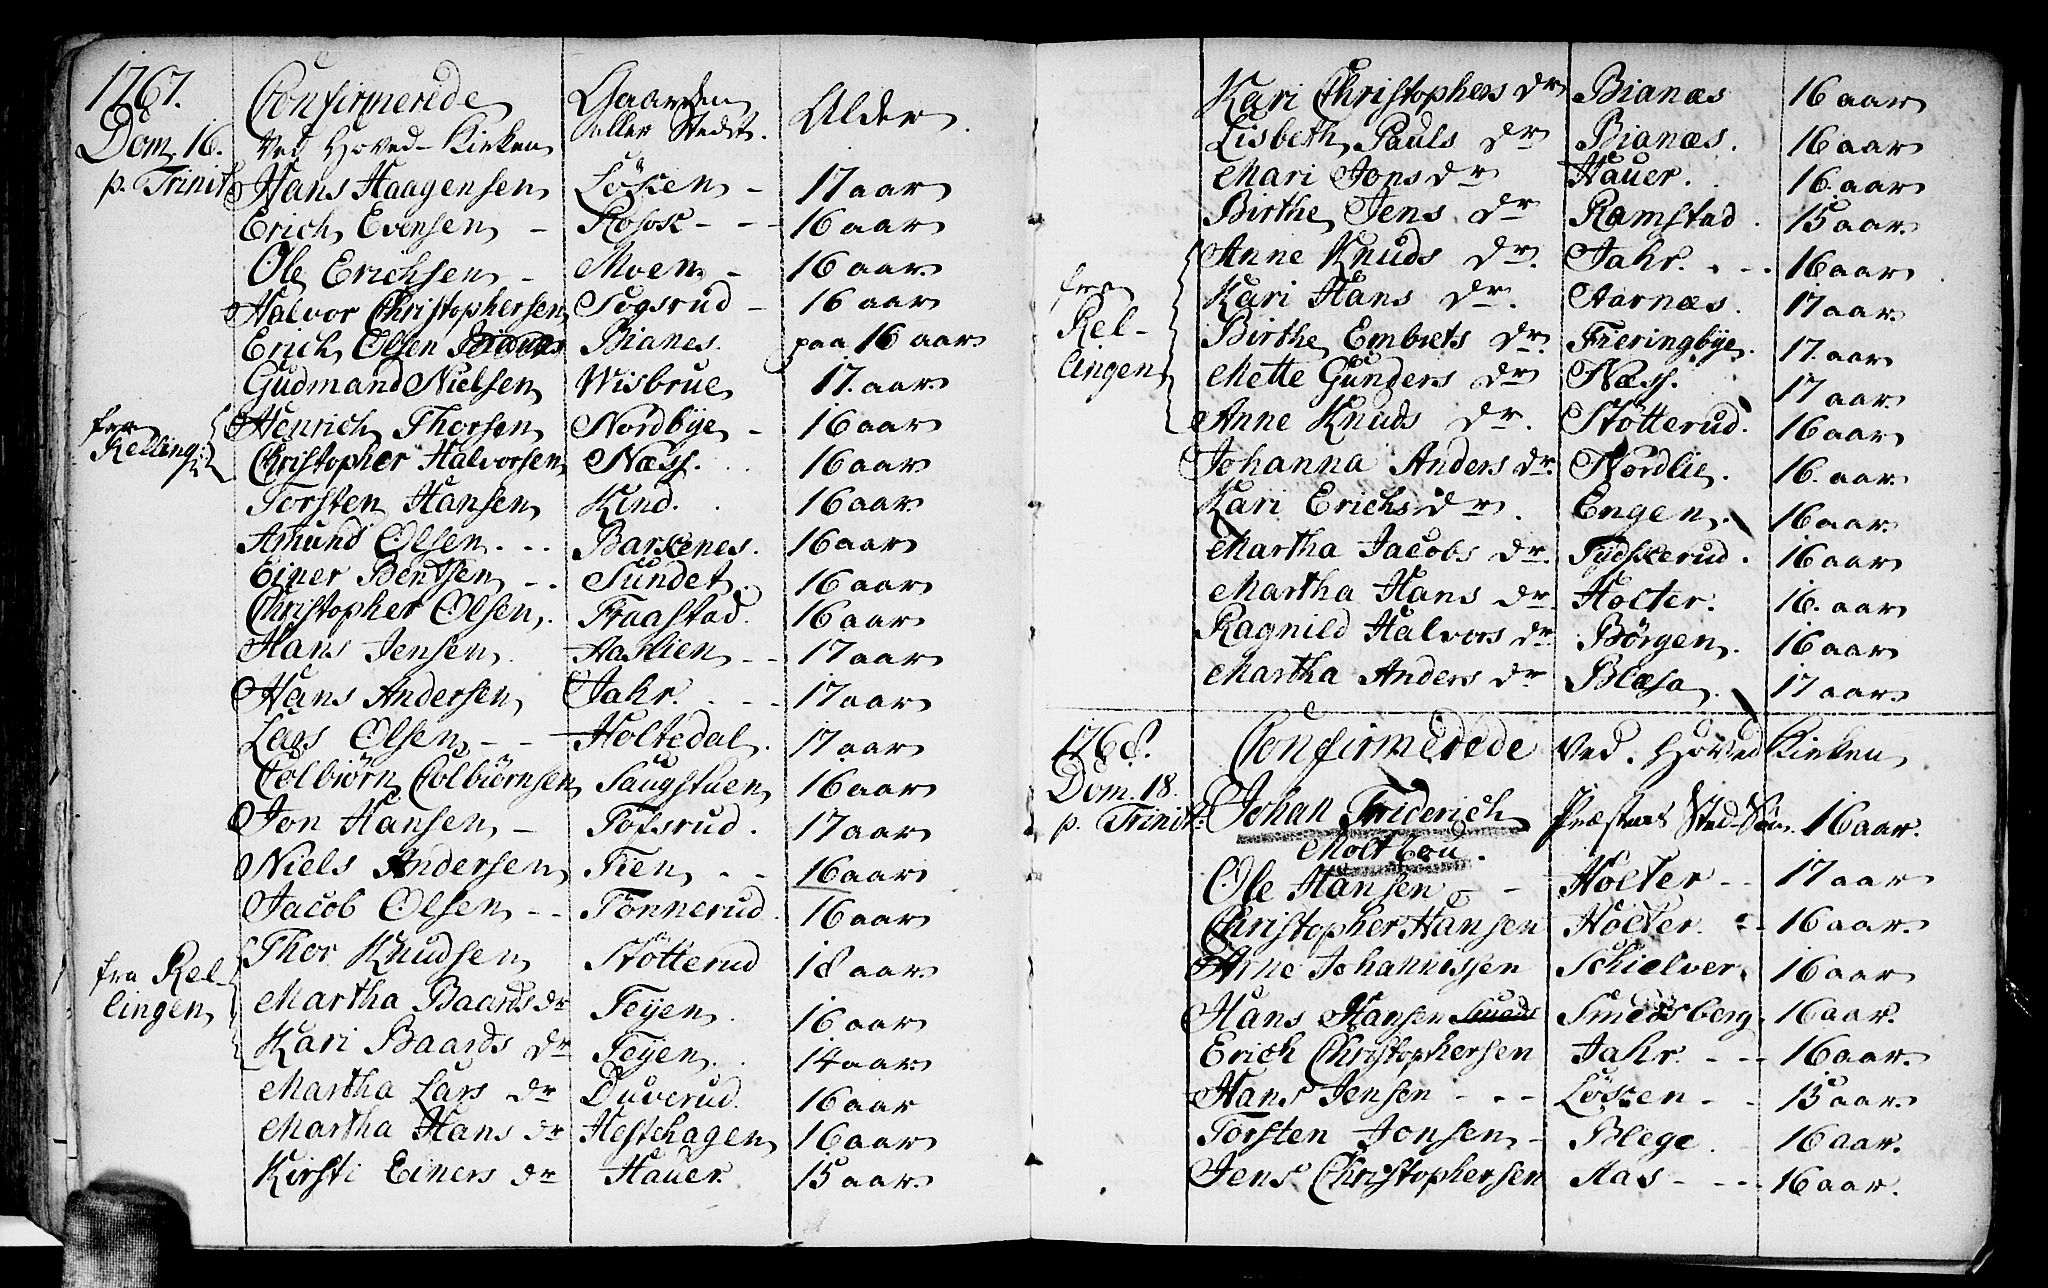 1767.
Dom. 16.
p. Trinit:
Confirmerede Gaarden Alder.
Ved Hoved-Kirken eller Stedet.
Hans Haagensen Løken - 17 aar
Erich Evensen - Kosok - - 16 aar
Ole Erichsen - Moen - 16 aar
Halvor Christophersen Togsrud - 16 aar
Erich Olsen Bianes. paa 16 aar
Gudmand Nielsen Wisbrue 17. aar
fra Relling: Henrich Thorsen Nordbye - 16 aar
Christopher Halvorsen Næss. 16 aar
Torsten Hansen Kind. 16 aar
Amund Olsen. - - Barkenes. 16 aar
Einer Bentsen - - Sundet. 16 aar
Christopher Olsen. Fraastad. 16 aar
Hans Jensen. Aaslien - - 17 aar
Hans Andersen Jahr. - - - 17 aar
Lars Olsen - - Holtedal. 17 aar
Colbiørn Colbiørnsen Saugstuen 16 aar
Jon Hansen - Tofsrud. 17 aar
Niels Andersen Tien - - 16 aar
Jacob Olsen - - Tonnerud. 16 aar
fra Rel-
lingen
Thor Knudsen Støtterud 18 aar
Martha Baards dr Teyen. 16 aar
Kari Baards dr Teyen. 14 aar
Martha Lars dr Duverud. 16 aar
Martha Hans dr Hestehagen 16 aar
Kirsti Einers dr Hauer 15 aar
Kari Christophers dr Bianæs 16 aar
Lisbeth Pauls dr Bianæs. 16 aar
Mari Jons dr Hauer. 16. aar
Birthe Jens dr Ramstad. 15 aar
fra
Rel-
lingen
Anne Knuds dr. Jahr. - - - 16 aar
Kari Hans dr. Aarnæs. 17 aar
Birthe Embrets dr. Fieringbye. 17. aar
Mette Gunders dr Næss. 17 aar
Anne Knuds dr. Støtterud. 16 aar
Johanna Anders dr. Nordlie. 16. aar
Kari Erichs dr. Engen. 16 aar
Martha Jacobs dr. Tydskerud. 16 aar
Martha Hans dr. Holter. 16. aar
Ragnild Halvors dr. Børgen. 16 aar
Martha Anders dr Blæsa. 17 aar
1768. Confirmerede Ved. Hoved Kirken
Dom. 18.
p. Trinit:
Johan Friderich Præstens Sted-Søn. 16 aar.
Moltzou.
Ole Hansen - - Holter - - 17 aar
Christopher Hansen Holter. - - 16 aar.
Arne Johannissen Schielver 16 aar
Hans Hansen Smedsberg 16 aar.
Erich Christophersen Jahr. - - - 16 aar.
Hans Jensen - - - Løken - - 15 aar.
Torsten Jonsen - Blege. 16 aar.
Jens Christophersen Aas - - - 16 aar.